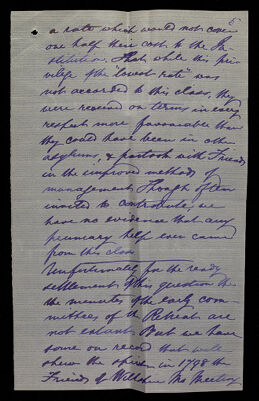 5
a rate which would not cover
one half their cost to the In-
stitution. That while this pri-
vilege of the "lowest rate" was
not accorded to this class, they
were received on terms in every
respect more favourable than
they could have been in other
asylums, & partook with Friends
in the improved methods of
management. Though often
invited to contribute, we
have no evidence that any
pecuniary help ever came
from this class
Unfortunately for the ready
settlement of this question the
the minutes of the early com-
mittees of the Retreat are
not extant. But we have
some on record that will
shew the spirit in 1798 the
Friends of Wiltshire Mo Meeting